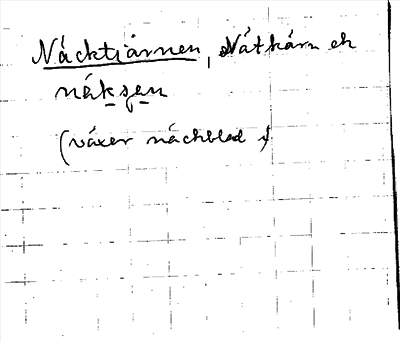 Näcktiärnen, Nátkärn ek
näksen
(växer näckblad i)